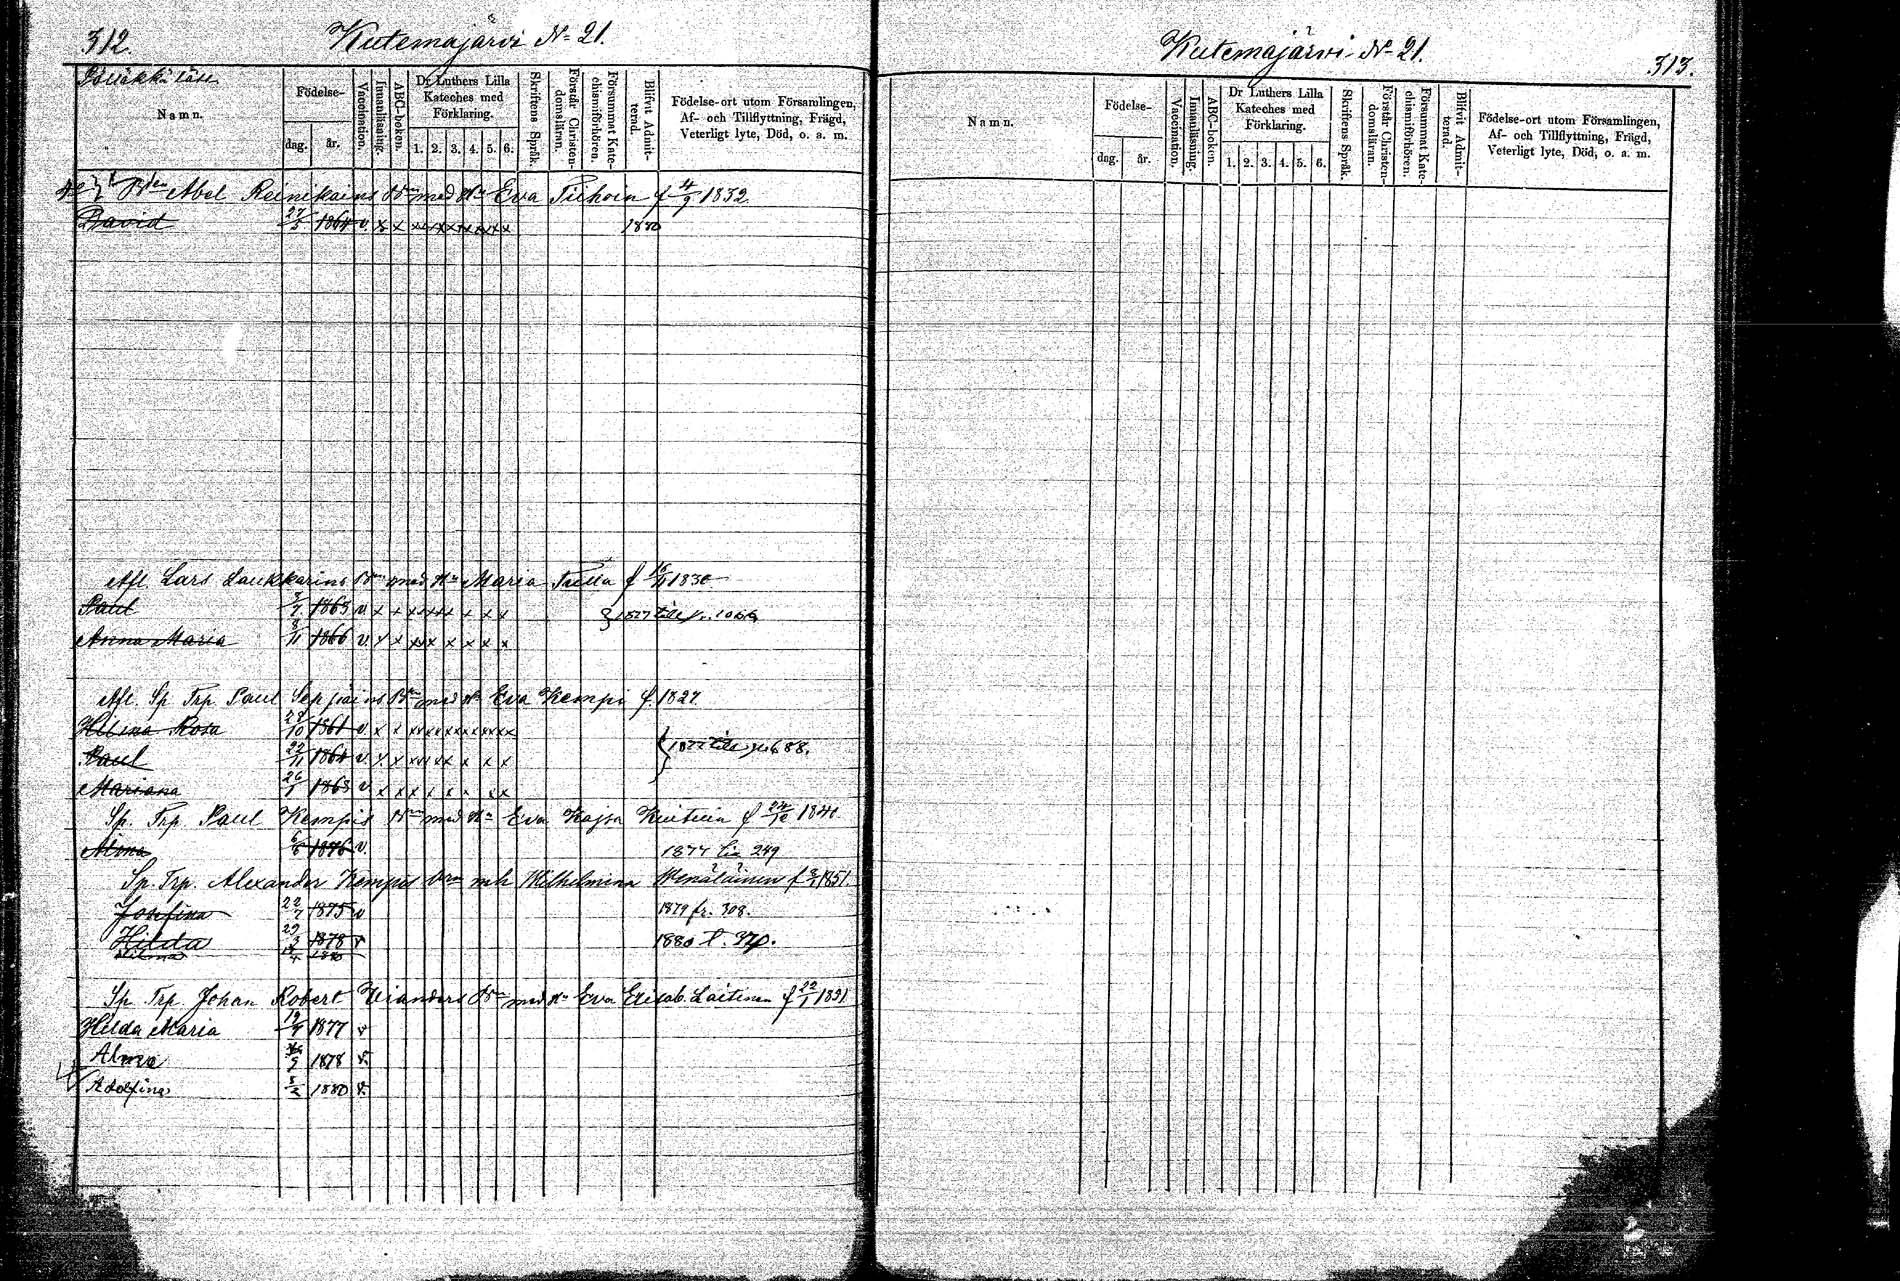 312.
Kutemajärvi № 21.
Namn.
Födelse-
dag.
år.
Vaccination.
Innanläsning.
ABC-boken.
Dr Luthers Lilla
Kateches med
Förklaring.
1. 2. 3. 4. 5. 6.
Skriftens Språk.
Förstår Christen-
domsläran.
Försummat Kate-
chismiförhören.
Blifvit Admit-
terad.
Födelse-ort utom Församlingen,
Af- och Tillflyttning, Frägd,
Veterligt lyte, Död, o. a. m.
Abel Reinikains Bn med Hu Eva Tiihoin f 4/9 1832
David 27/5 1864 v. x x x x x x x x x x x 1880
Afl. Lars Laukkarins Bn med Hu Maria f 1830
Paul 3/7 1863 v x x x x x x x x x } 1877 till
Anna Maria 8/11 1866 v. x x x x x x x x x
Afl. Sp. Trp. Paul Bn med Hu Eva Kempi f. 1827.
Rosa 28/10 1861 v. x x x x x x x x x x x
Paul 22/11 1864 v. x x x x x x x x x } 1877 till 688.
Mariana 26/1 1868 v. x x x x x x x x
Sp. Trp. Paul Kempis Bn med Hu Eva Kajsa f 24/10 1840.
Alma 6/6 1876 v. 1877 249
Sp. Trp. Alexander Kempis brn mh Wilhelmina f 1851.
Josefina 22/7 1875 v 1879 fr. 308.
Hilda 29/3 1878 v 1880 t. 370.
Sp. Trp. Johan Robert Bn med Hu Eva Elisab. Laitinen f 22/1 1851
Hilda Maria 19/4 1877 v
Alma 1878 v.
Adolfina 8/2 1880 v.
Kutemajärvi № 21.
313.
Namn.
Födelse-
dag.
år.
Vaccination.
Innanläsning.
ABC-boken.
Dr Luthers Lilla
Kateches med
Förklaring.
1. 2. 3. 4. 5. 6.
Skriftens Språk.
Förstår Christen-
domsläran.
Försummat Kate-
chismiförhören.
Blifvit Admit-
terad.
Födelse-ort utom Församlingen,
Af- och Tillflyttning, Frägd,
Veterligt lyte, Död, o. a. m.